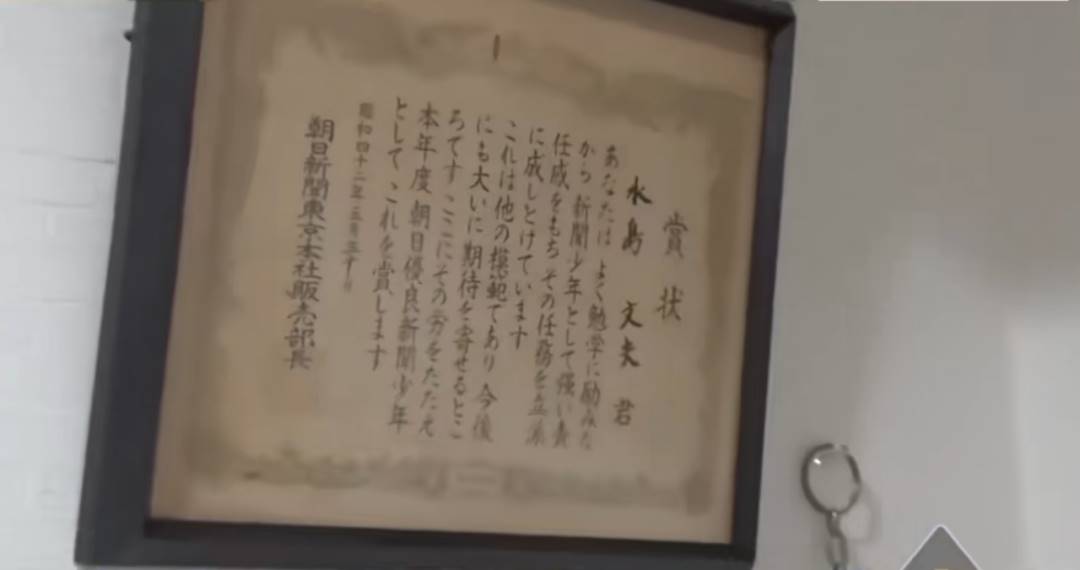 賞状
水島 文夫 君
あなたは よく勉学に励みな
から 新聞少年として強い責
任感をもち その任務を立派
に成しとげています
これは他の模範であり 今後
にも大いに期待を寄せるとこ
ろです ここにその労をたたえ
本年度 朝日優良新聞少年
として これを賞します
昭和四十二年五月
朝日新聞東京本社販売部長